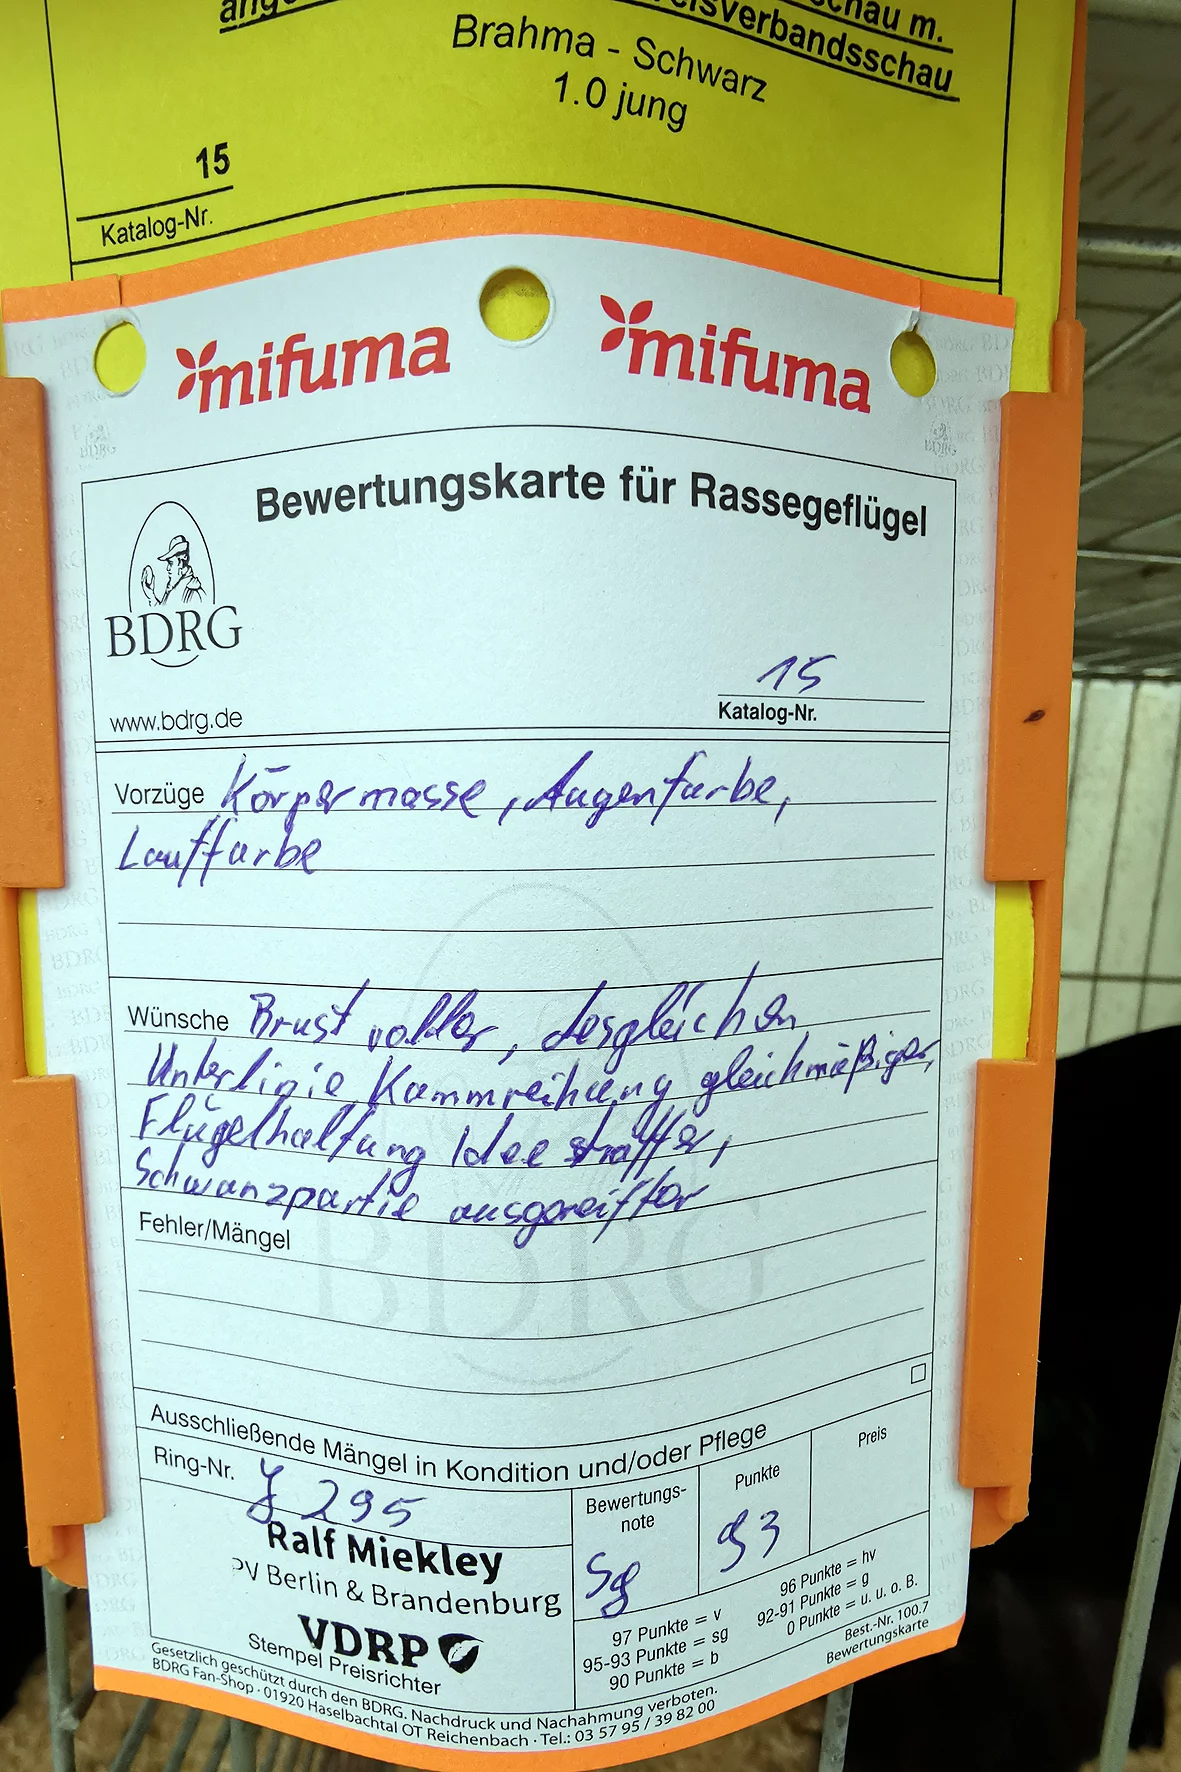 schau m.
Kreisverbandsschau
Brahma - Schwarz
1.0 jung
15
Katalog-Nr.
mifuma mifuma
Bewertungskarte für Rassegeflügel
BDRG
www.bdrg.de
15
Katalog-Nr.
Vorzüge Körpermasse, Augenfarbe,
Lauffarbe
Wünsche Brust voller, desgleichen
Unterlinie, Kammreihung gleichmäßiger,
Flügelhaltung Idee straffer,
Schwanzpartie ausgereifter
Fehler/Mängel
Ausschließende Mängel in Kondition und/oder Pflege
Ring-Nr. 295
Bewertungs-
note
Sg
Punkte
93
Preis
Ralf Miekley
PV Berlin & Brandenburg
VDRP
Stempel Preisrichter
97 Punkte = v
96 Punkte = hv
95-93 Punkte = sg
92-91 Punkte = g
90 Punkte = b
0 Punkte = u. u. o. B.
Best.-Nr. 100.7
Bewertungskarte
Gesetzlich geschützt durch den BDRG. Nachdruck und Nachahmung verboten.
BDRG Fan-Shop · 01920 Haselbachtal OT Reichenbach · Tel.: 03 57 95 / 39 82 00